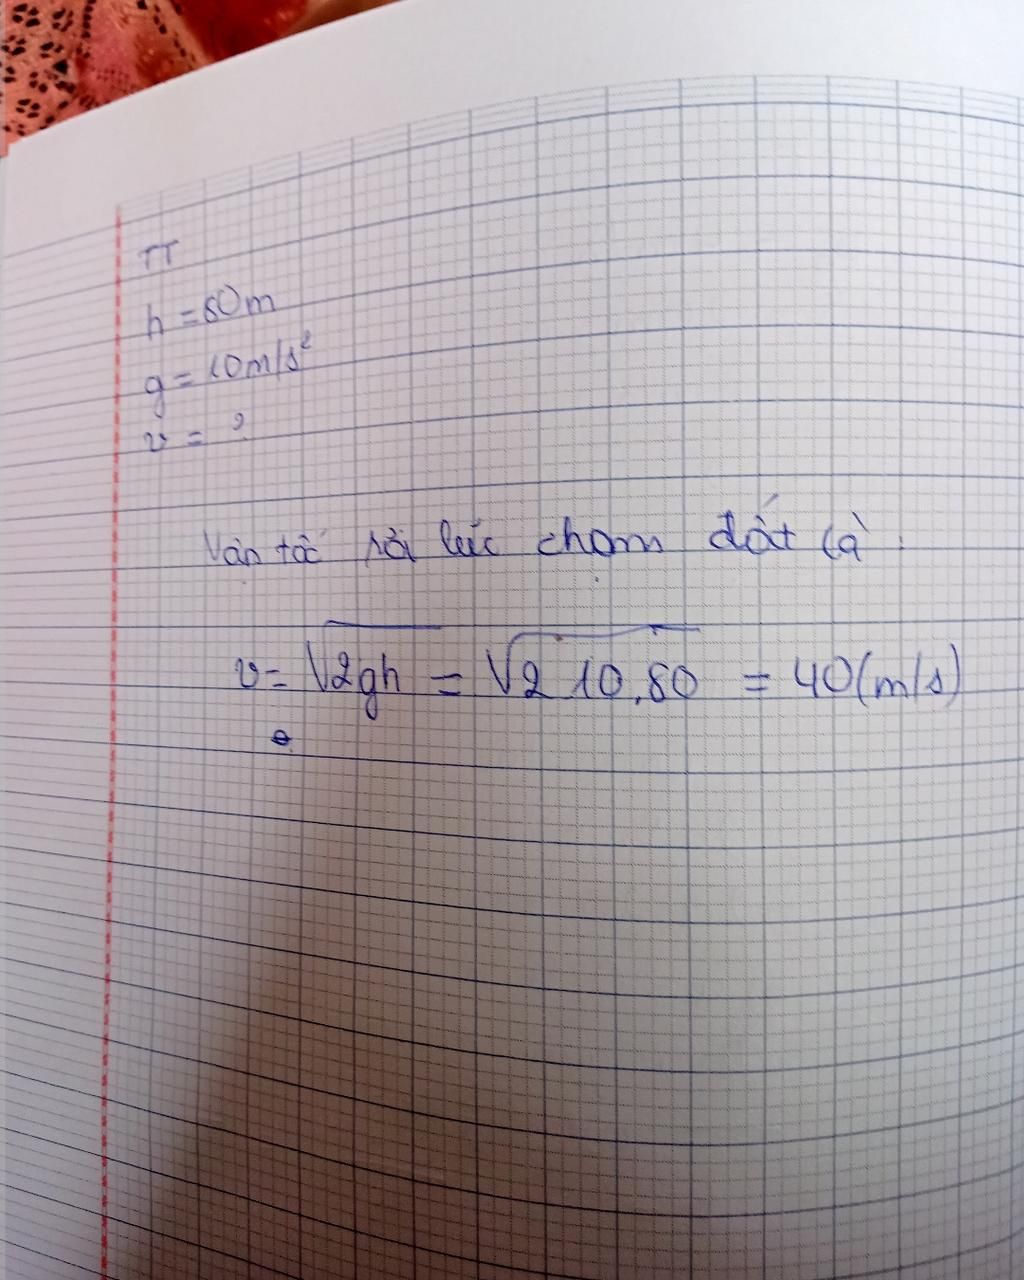 TT
h = 80m
g = 10m/s²
v = ?
Vận tốc rơi lúc chạm đất là:
v = √2gh = √2.10.80 = 40(m/s)